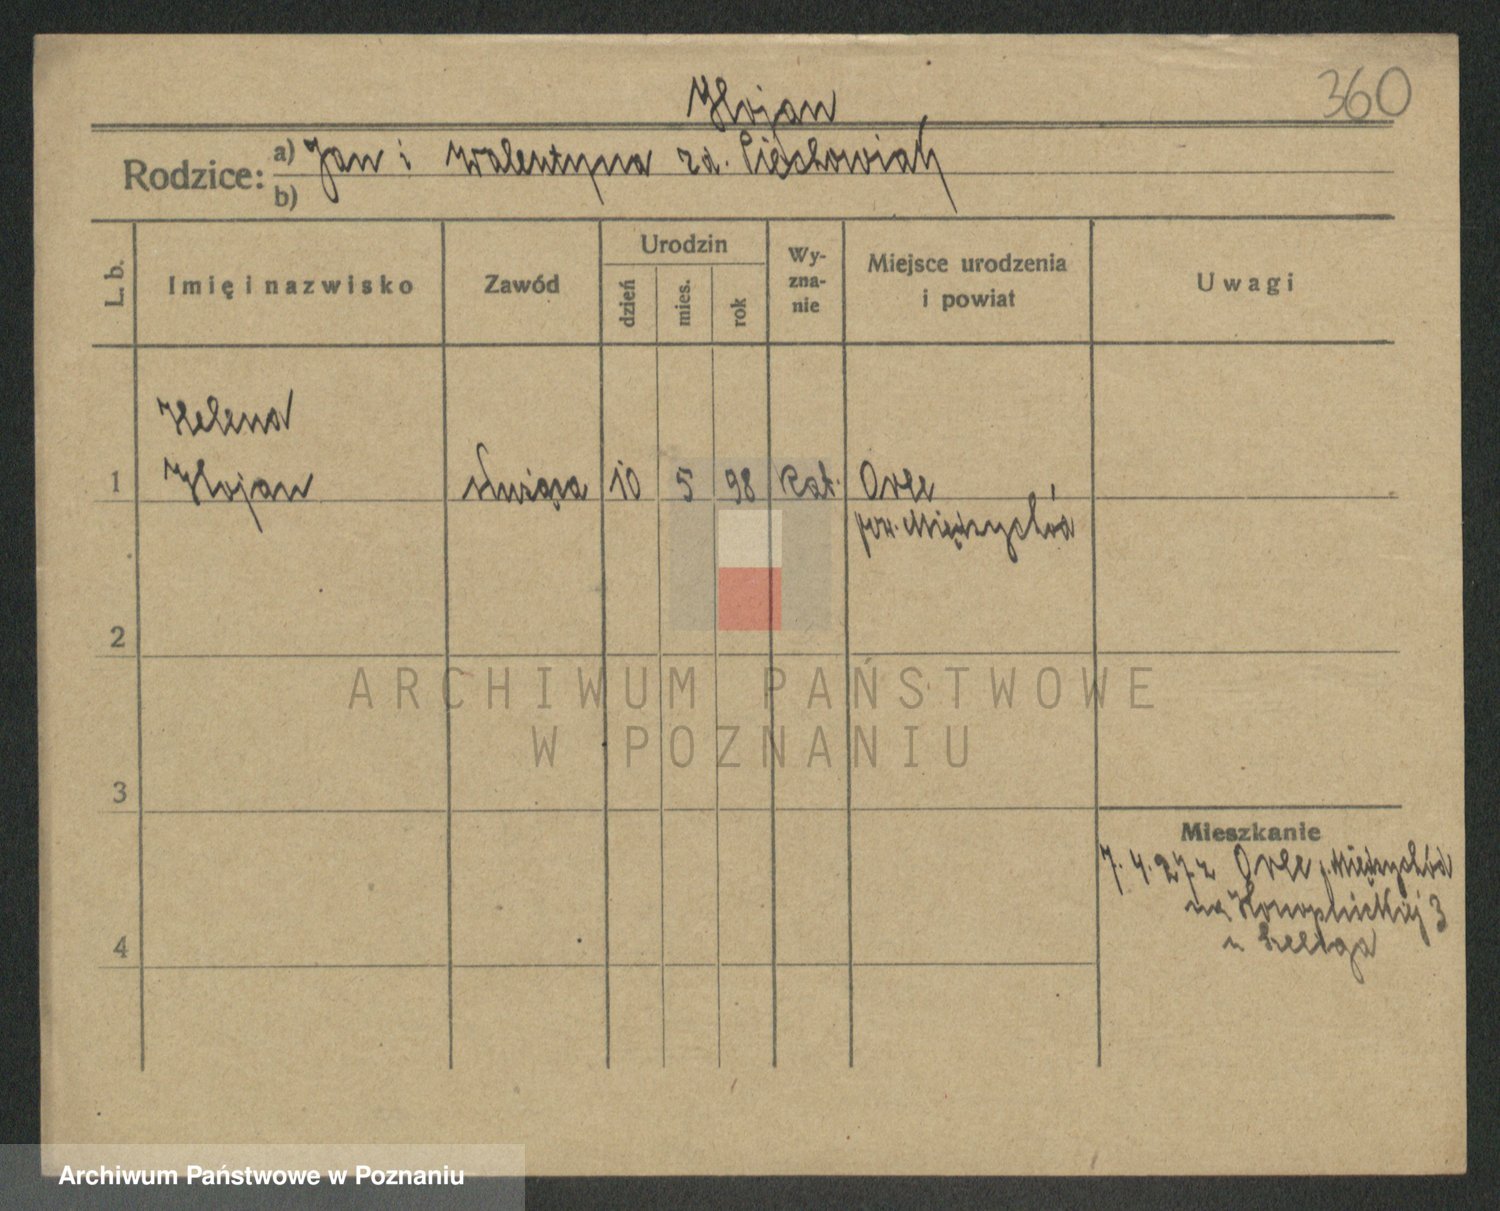 360
Hojan
Rodzice: a) Jan i Walentyna zd. Ciechowiak
b)
L. b.
Imię i nazwisko
Zawód
Urodzin
dzień
mies.
rok
Wy-
zna-
nie
Miejsce urodzenia
i powiat
Uwagi
Helena
1 Hojan służąca 10 5 98 kat. Orle
pow. Międzychód
2
ARCHIWUM PAŃSTWOWE
W POZNANIU
3
Mieszkanie
7. 4. 27 z Orle p. Międzychód
na Konopnickiej 3
4
Archiwum Państwowe w Poznaniu